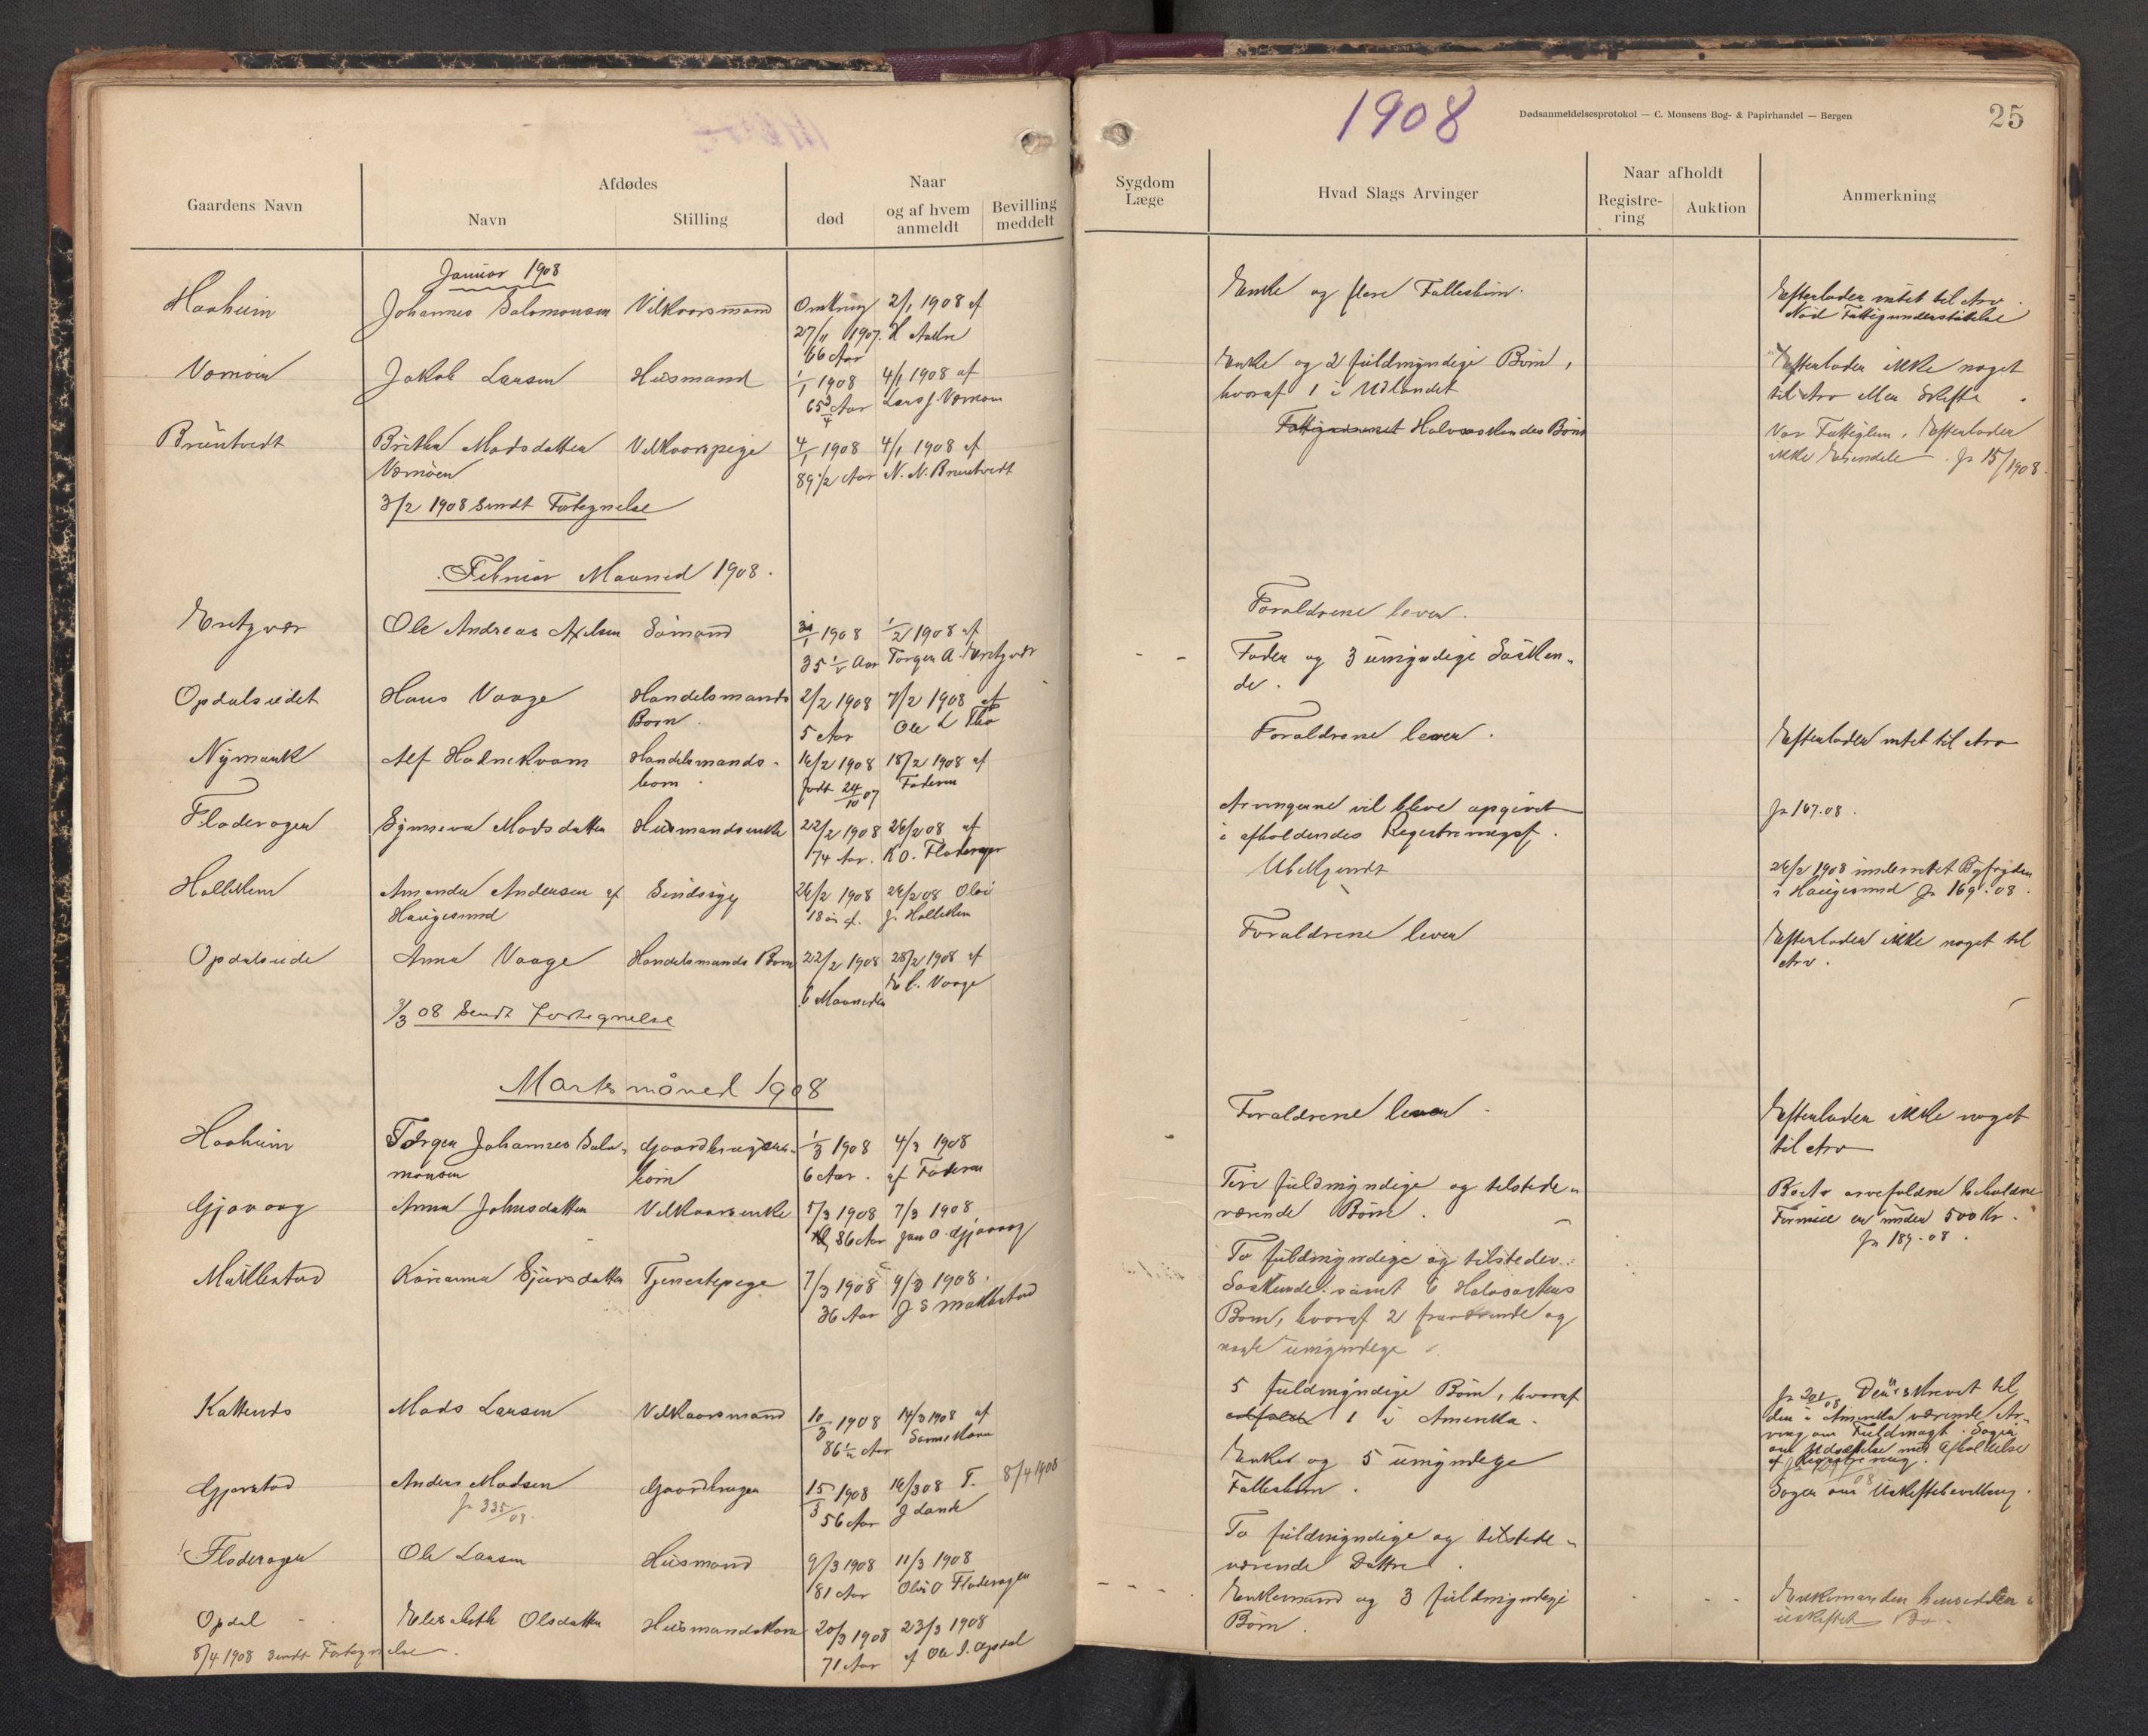 1908
Dødsanmeldelsesprotokol — C. Monsens Bog- & Papirhandel — Bergen
25
Gaardens Navn
Afdødes
Navn
Stilling
Naar
død
og af hvem anmeldt
Bevilling meddelt
Sygdom Læge
Hvad Slags Arvinger
Naar afholdt
Registre-ring
Auktion
Anmerkning
Januar 1908
Haaheim Johannes Salomonsen Vilkaarsmand Omkring 2/1 1908 af Enke og flere Fællesbørn. Efterlader intet til Arv.
27/11 1907. Nød Fattigunderstøttelse
66 Aar
Jakob Larsen Husmand 1/1 1908 4/1 1908 af Enke og 2 fuldmyndige Børn, Efterlader ikke noget
65 3/4 Aar Lars J. hvoraf 1 i Udlandet til Arv
Bruntvedt Britha Madsdatter Vilkaarspige 4/1 1908 4/1 1908 af Halvsøskendes Børn Var Fattiglem. Efterlader
89 1/2 Aar N. N. Bruntvedt ikke Eiendele. Jr 15/1908.
3/2 1908 Sendt Fortegnelse
Februar Maaned 1908.
Ole Andreas Axelsen Sømand 31/1 1908 1/2 1908 af Forældrene lever.
35 1/2 Aar Torger A. Fader og 3 umyndige Søsken-
de.
Opdalseidet Hans Vaage Handelsmands 2/2 1908 7/2 1908 af Forældrene lever. Efterlader intet til Arv
Barn. 5 Aar Ole L
Nymark Alf Hadnekvam Handelsmands- 16/2 1908 18/2 1908 af
barn født 24/10 07 Faderen
Fladevagen Synneva Madsdatter Husmandsenke 22/2 1908 26/2 08 af Arvingerne vil blive opgivet Jr 167.08.
74 Aar. K O. Fladevagen i afholdendes Registreringsf.
Amanda Andersen af Sindssyg 26/2 1908 26/2 08 Ubekjendt 26/2 1908 underrettet Byfogden
Haugesund 18 i Haugesund Jr 169.08.
Opdalseide Anna Vaage Handelsmands Barn 22/2 1908 28/2 1908 af Forældrene lever Efterlader ikke noget til
6 Maaneder Vaage Arv.
3/3 08 Sendt Fortegnelse
Marts måned 1908
Haaheim Torger Johannes Salo- Gaardbrugers- 1/3 1908 4/3 1908 Forældrene lever. Efterlader ikke noget
monsen barn 6 Aar. af Faderen til Arv
Gjøvaag Anna Johnsdatter Vilkaarsenke 5/3 1908 7/3 1908 Tire fuldmyndige og tilstede- Boets arvefaldne beholdne
86 Aar Jan O. Gjøvaag værende Børn. Formue er under 500 Kr.
Jr 189.08.
Møklestad Karianna Sjursdatter Tjenestepige 7/3 1908 9/3 1908. To fuldmyndige og tilstedev.
36 Aar J S Møklestad Søskende samt 6 Halvsøskens
Børn, hvoraf 2 fraværende og
nogle umyndige
Mads Larsen Vilkaarsmand 10/3 1908 14/3 1908 af 5 fuldmyndige Børn, hvoraf Den skrevet til
86 1/2 Aar 1 i Amerika. den i Amerika værende Ar-
ving om Fuldmagt. Søger
om Udsættelse med Afholdelse
af Registrering.
Gjerstad Anders Madsen Gaardbruger 15/3 1908 16/3 08 T. 8/4 1908 Enke og 5 umyndige
Jr 335/08. 56 Aar J Lande Fællesbørn. Søger om Uskiftebevilling.
Fladevagen Ole Larsen Husmand 9/3 1908 11/3 1908 To fuldmyndige og tilstede-
81 Aar Fladevagen værende Døttre.
Opdal Elisabeth Olsdatter Husmandskone 20/3 1908 23/3 1908 Enkemand og 3 fuldmyndige Enkemanden hensidder i
71 Aar af Ole J. Opdal Børn. uskiftet Bo.
8/4 1908 Sendt Fortegnelse.